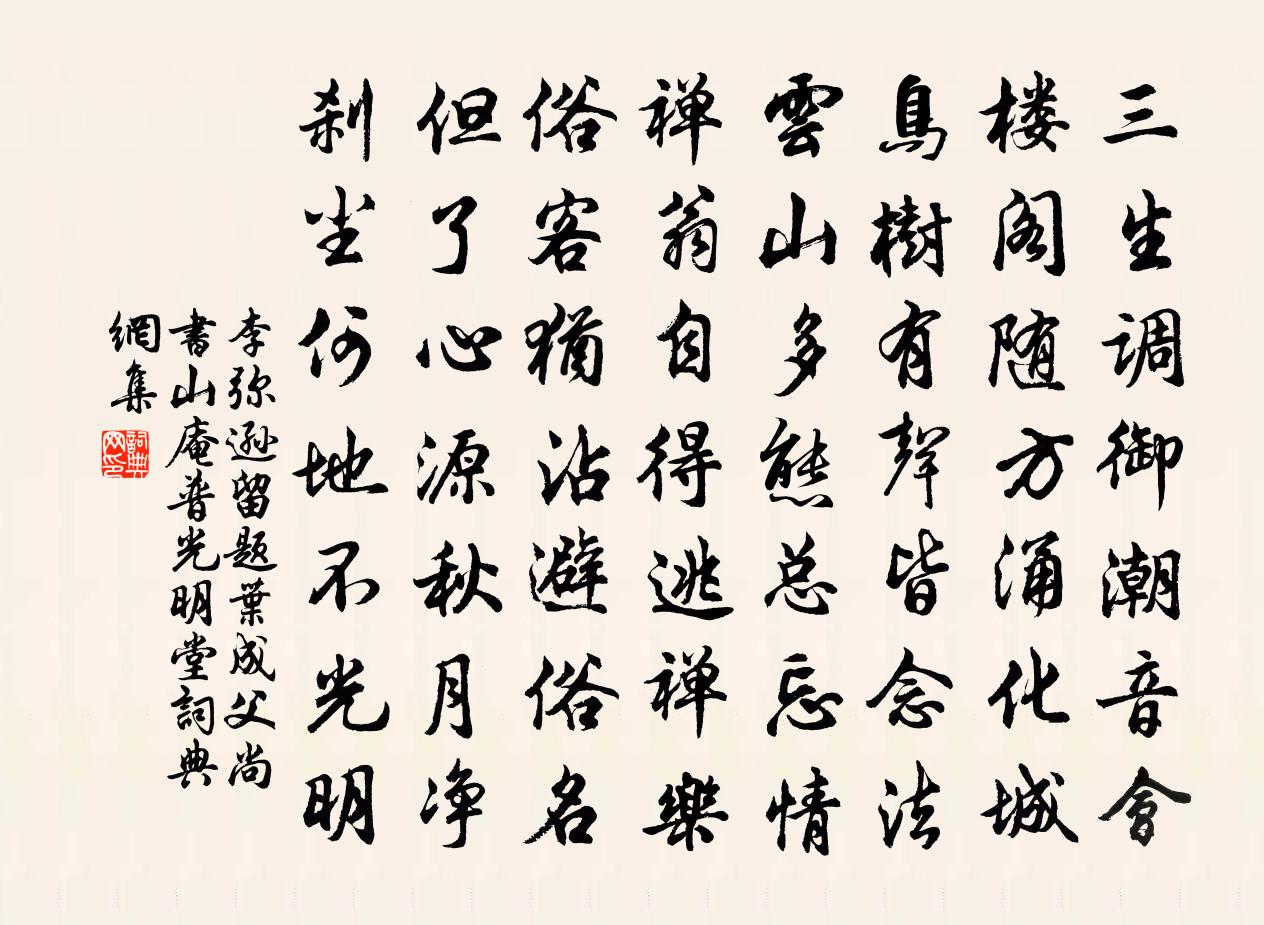 三生调御潮音會
楼阁随方涌化城
鳥樹有聲皆念法
雲山多態总忘情
禅翁自得逃禅樂
俗客猶沾避俗名
但了心源秋月净
刹尘何地不光明
李弥逊留题葉成父尚
書山庵普光明堂詞典
網集
詞典网印